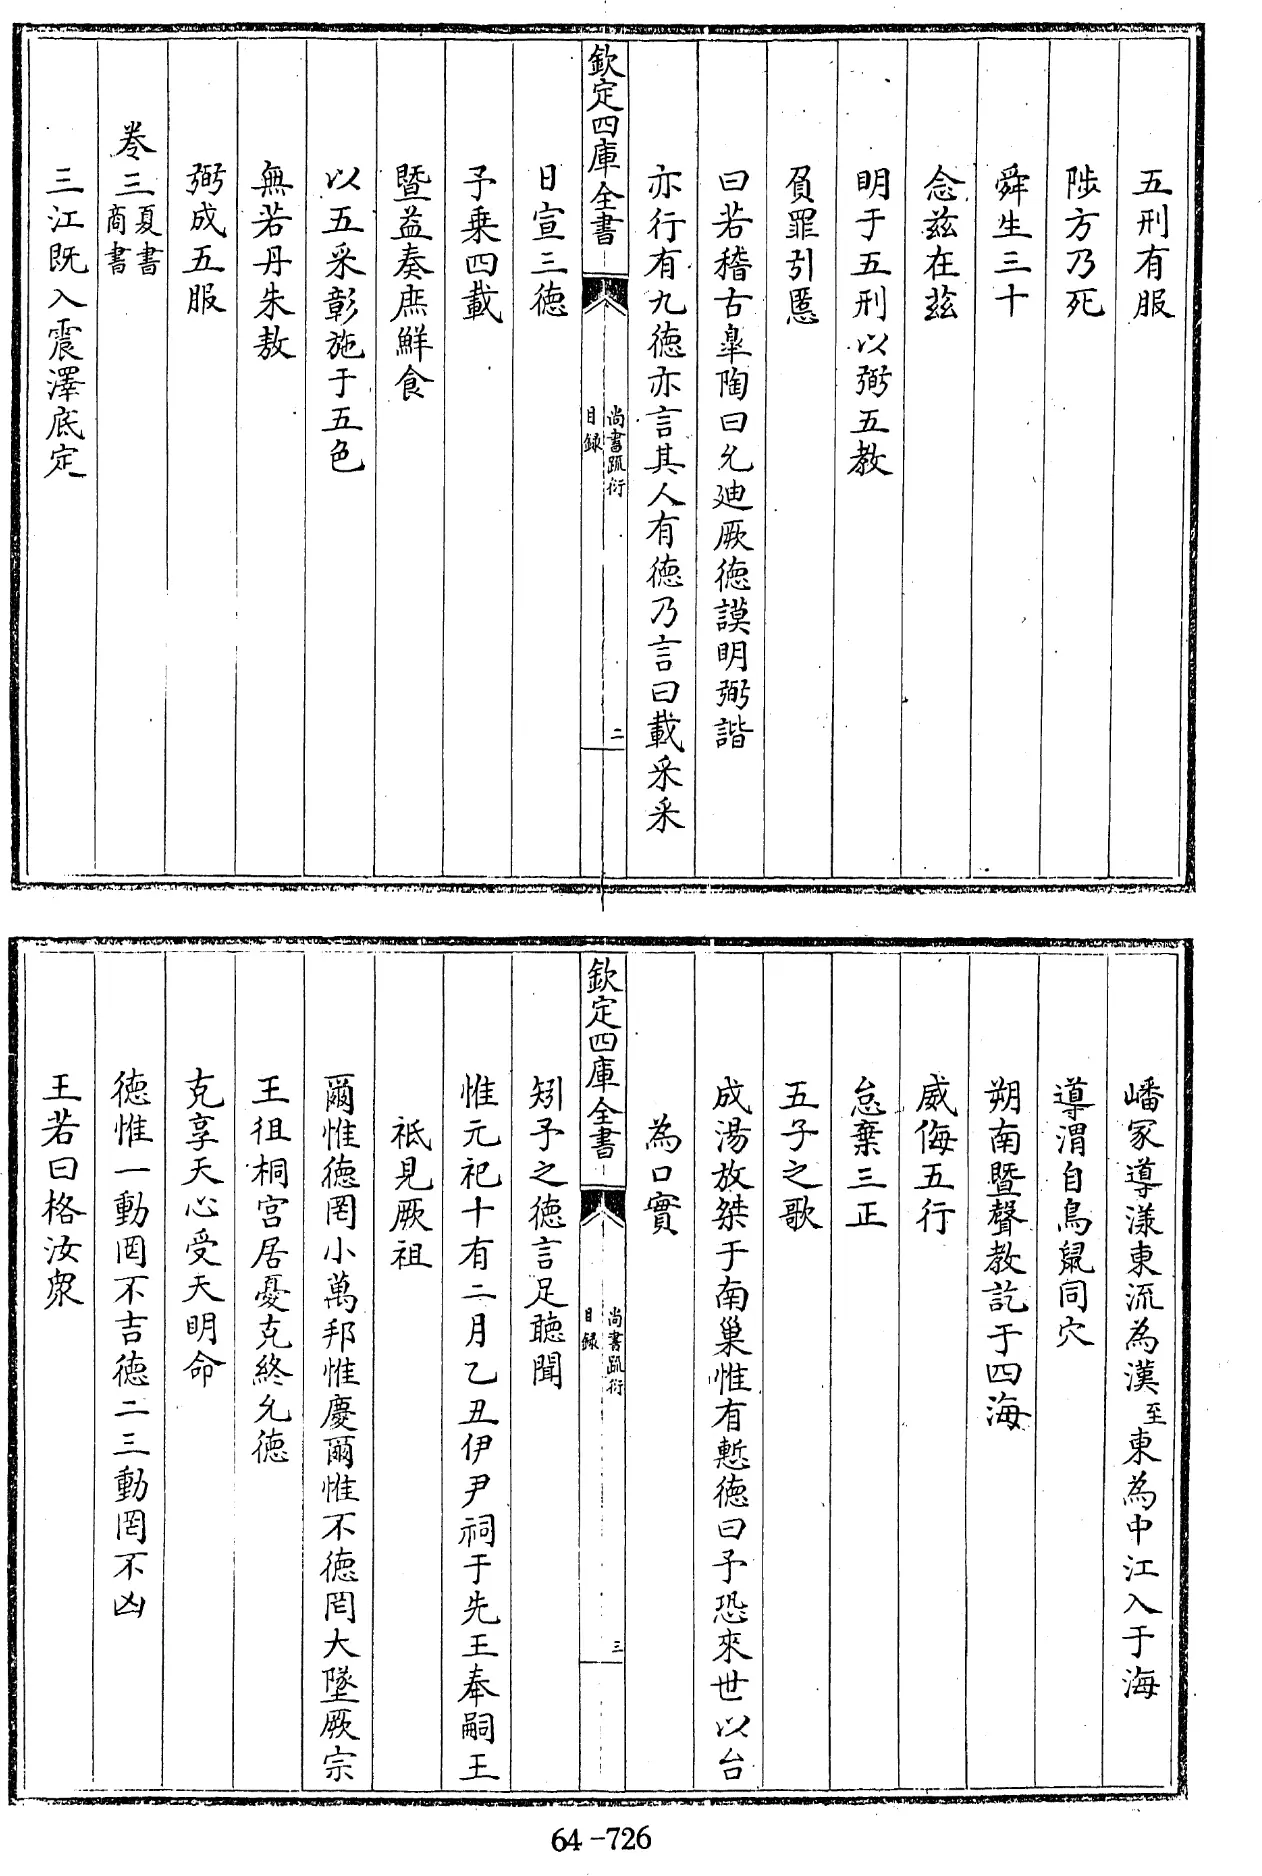 五刑有服
陟方乃死
舜生三十
念兹在兹
明于五刑以弼五教
負罪引慝
曰若稽古臯陶曰允廸厥德謨明弼諧
亦行有九德亦言其人有德乃言曰載采采
欽定四庫全書
尚書疏衍
目録
二
日宣三德
予乗四載
暨益奏庶鮮食
以五采彰施于五色
無若丹朱敖
弼成五服
卷三夏書
商書
三江既入震澤底定
嶓冢導漾東流為漢至東為中江入于海
導渭自鳥鼠同穴
朔南暨聲教訖于四海
威侮五行
怠棄三正
五子之歌
成湯放桀于南巢惟有慙德曰予恐來世以台
為口實
欽定四庫全書
尚書疏衍
目録
三
矧予之德言足聽聞
惟元祀十有二月乙丑伊尹祠于先王奉嗣王
祇見厥祖
爾惟德罔小萬邦惟慶爾惟不德罔大墜厥宗
王徂桐宮居憂克終允德
克享天心受天明命
德惟一動罔不吉德二三動罔不凶
王若曰格汝衆
64-726